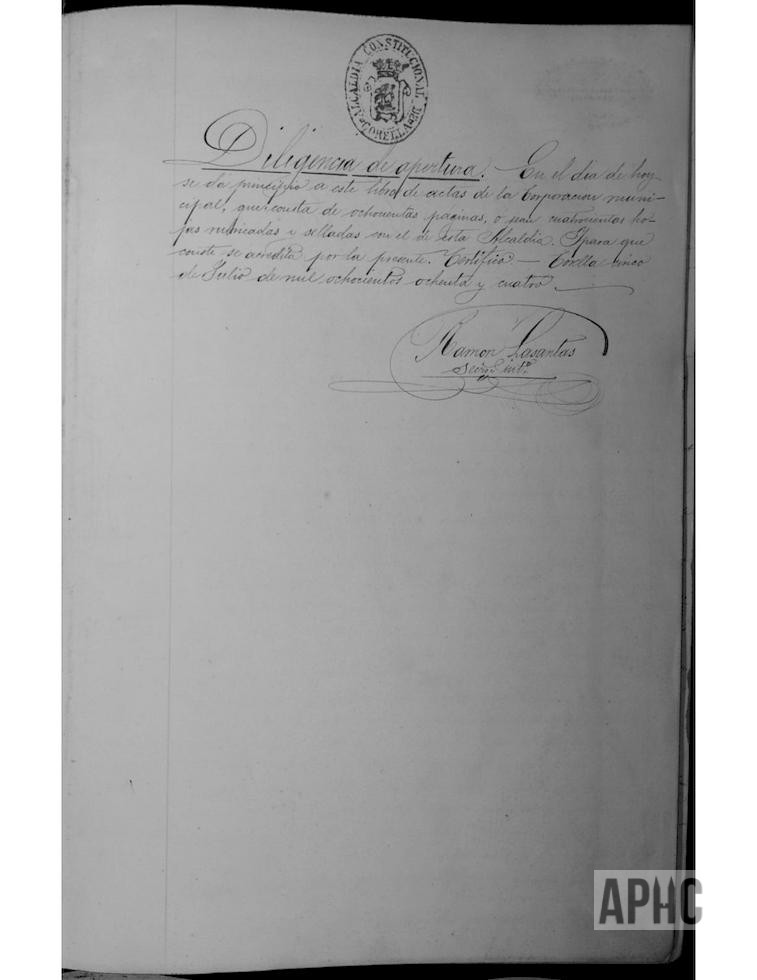 ALCALDIA CONSTITUCIONAL DE CORELLA
Diligencia de apertura. - En el dia de hoy
se dá principio a este libro de actas de la Corporacion muni-
cipal, que consta de ochocientas paginas, o sean cuatrocientas ho-
jas rubricadas y selladas con el de esta Alcaldia. Y para que
conste se acredita por la presente. Certifico - Corella cinco
de Julio de mil ochocientos ochenta y cuatro. -
Ramon Lasantas
APHC